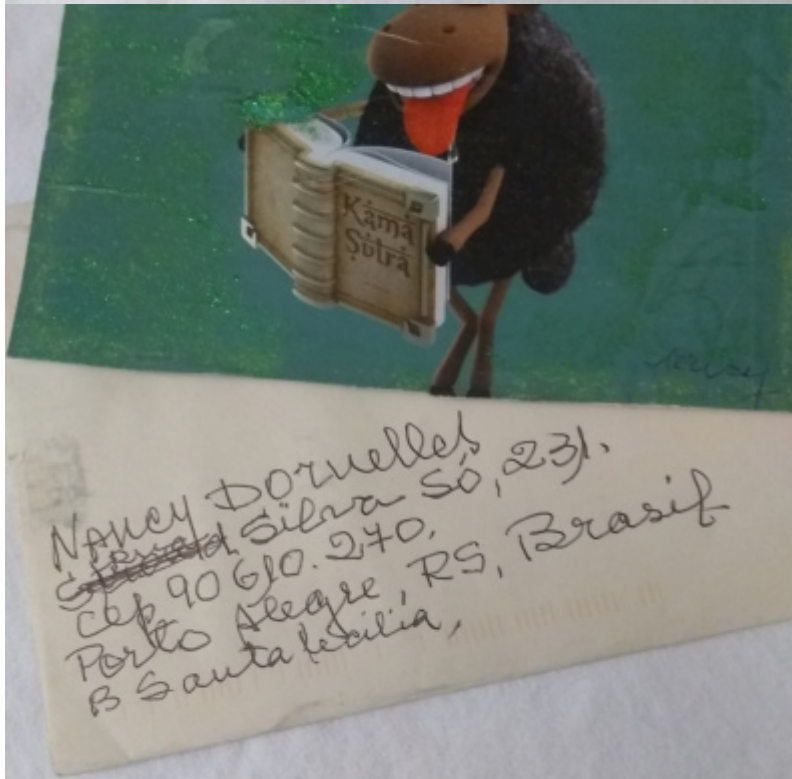 Kama
Sutra
NANCY DORNELLES
Silva Só, 231.
Cep 90610.270.
Porto Alegre, RS, Brasil
B Santa Cecilia,